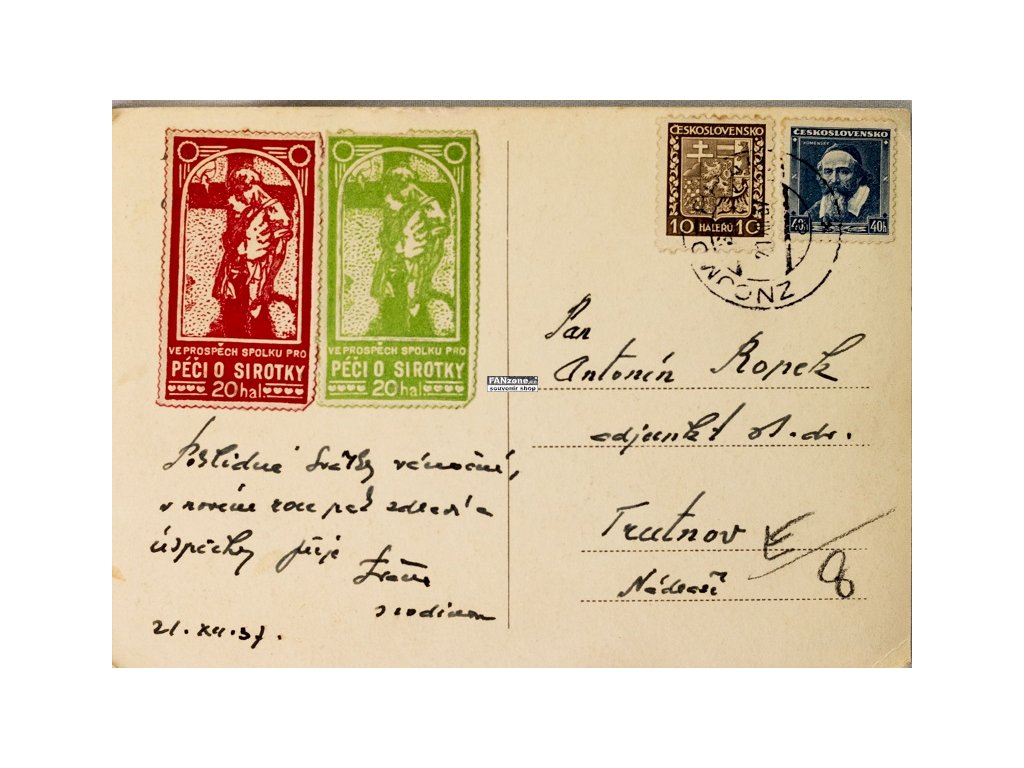 VE PROSPĚCH SPOLKU PRO
PÉČI O SIROTKY
20 hal.
VE PROSPĚCH SPOLKU PRO
PÉČI O SIROTKY
20 hal.
ČESKOSLOVENSKO
10 HALÉŘŮ 10
ČESKOSLOVENSKO
KOMENSKÝ
40h 40h
ZNOJMO
FANzone.cz
souvenir shop
Pan
Antonín Kopek
adjunkt st. dr.
Trutnov
Nádraží
8
Poklidné svátky vánoční,
v novém roce pak zdraví a
úspěchy přeje
s rodinou
21. XII. 37.